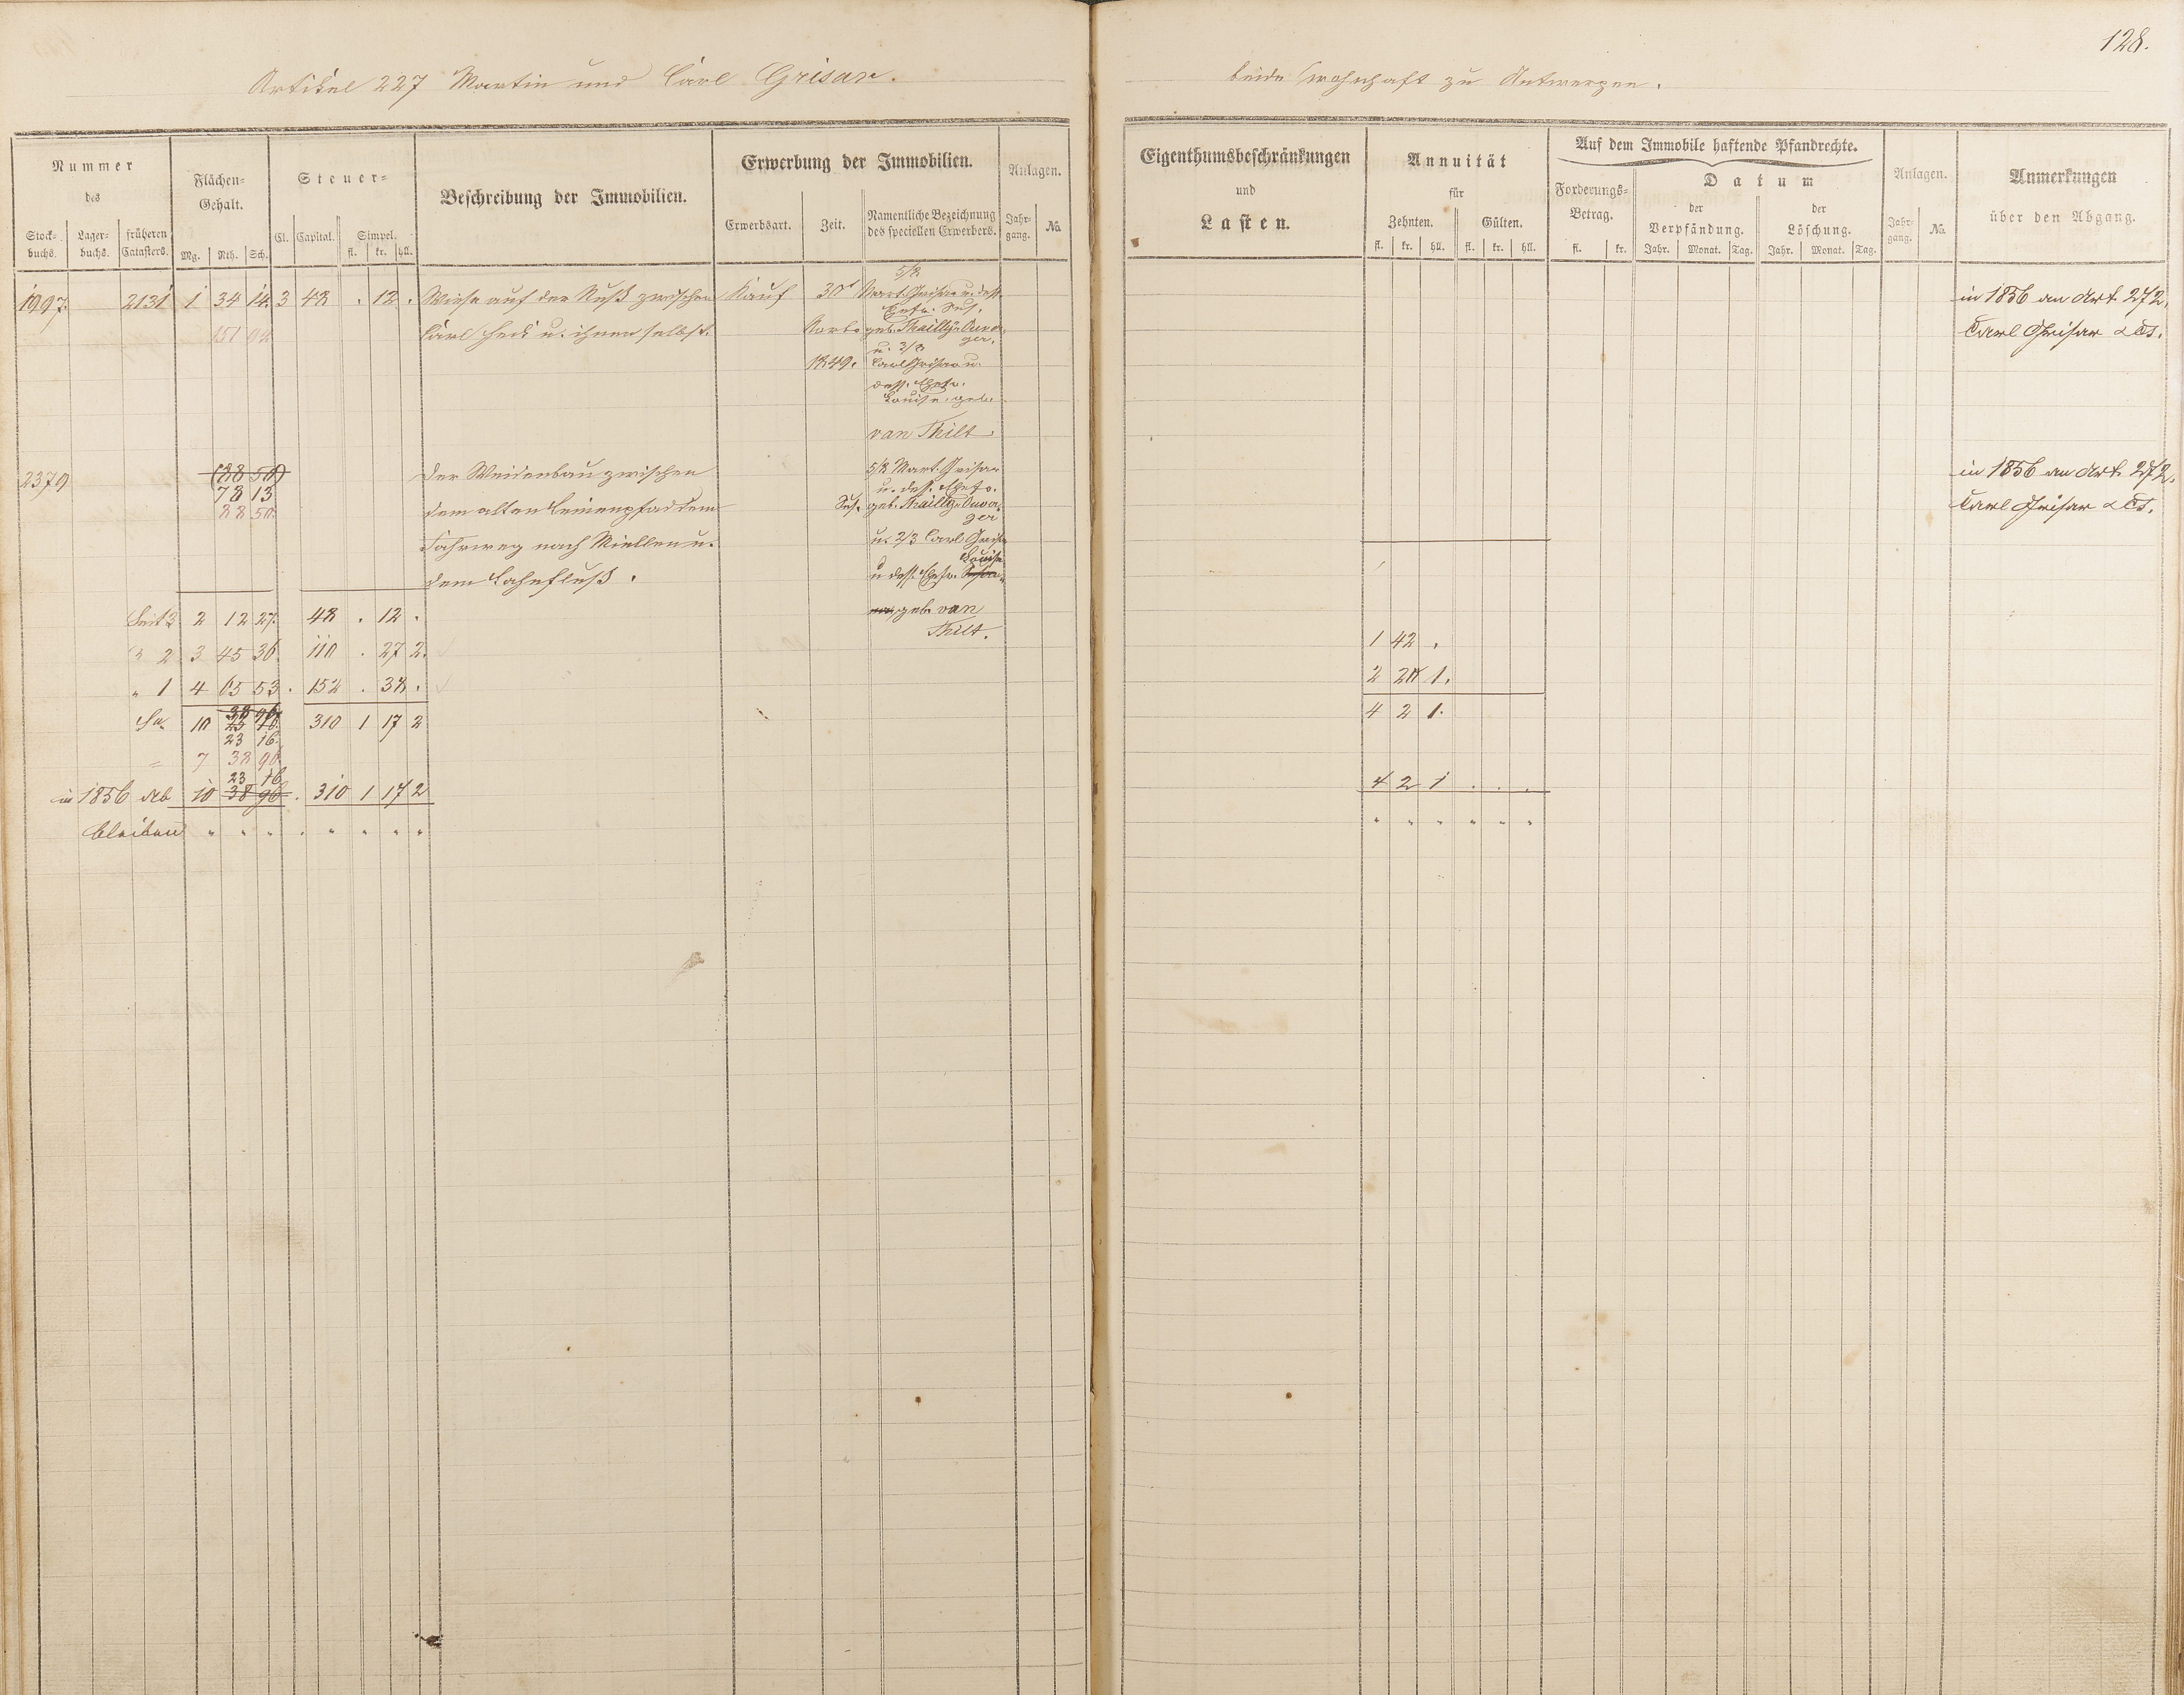 128.
Artikel 227 Martin und Carl Grisar.
beide wohnhaft zu Antwerpen.
Nummer
des
Stock-
buchs.
Lager-
buchs.
früheren
Catasters.
Flächen-
Gehalt.
Mg. Rth. Sch.
Steuer-
Cl. Capital. Simpel.
fl. kr. hll.
Beschreibung der Immobilien.
Erwerbung der Immobilien.
Erwerbsart. Zeit. Namentliche Bezeichnung
des speciellen Erwerbers.
Anlagen.
Jahr-
gang. No.
Eigenthumsbeschränkungen
und
Lasten.
Annuität
für
Zehnten. Gülten.
fl. kr. hll. fl. kr. hll.
Auf dem Immobile haftende Pfandrechte.
Forderungs-
Betrag.
fl. kr.
Datum
der
Verpfändung.
Jahr. Monat. Tag.
der
Löschung.
Jahr. Monat. Tag.
Anlagen.
Jahr-
gang. No.
Anmerkungen
über den Abgang.
5/8
1997. 2131 1 34 14. 3 48 . 12 . Wiese auf der Ruß zwischen Kauf 30t Mart. Grisar u. dess.
Ehefr. Sus.
151 94 Carl Heck u. ihnen selbst. geb. Thailly-Duva
ger.
u. 3/8
1849. Carl Grisar u.
dess. Ehefr.
Louise, geb.
van Thilt
in 1856 an Art. 272.
Carl Grisar & Cs.
2379 (28 50) der Weidenbau zwischen 5/8 Mart. Grisar
78 13 u. dess. Ehefr.
28 50. dem alten Leinenpfad dem Sus. geb. Thailly-Duva
ger
Fahrweg nach Miellen u. u. 2/3 Carl Grisar
Louise
dem Lahnfluß. u dess. Ehefr.
geb. van
Thilt.
in 1856 an Art. 272.
Carl Grisar & Cs.
Seit 3 2 12 27. 48 . 12 .
" 2 3 45 36. 110 . 27 2.
" 1 4 65 53. 152 . 38 .
38 96
Sa. 10 23 16. 310 1 17 2
23 16.
= 7 38 96
23 16
in 1856 ab 10 38 96 . 310 1 17 2
bleiben " " " . " " " "
1 42 .
2 20 1.
4 2 1.
4 2 1 . . .
" " " " " "